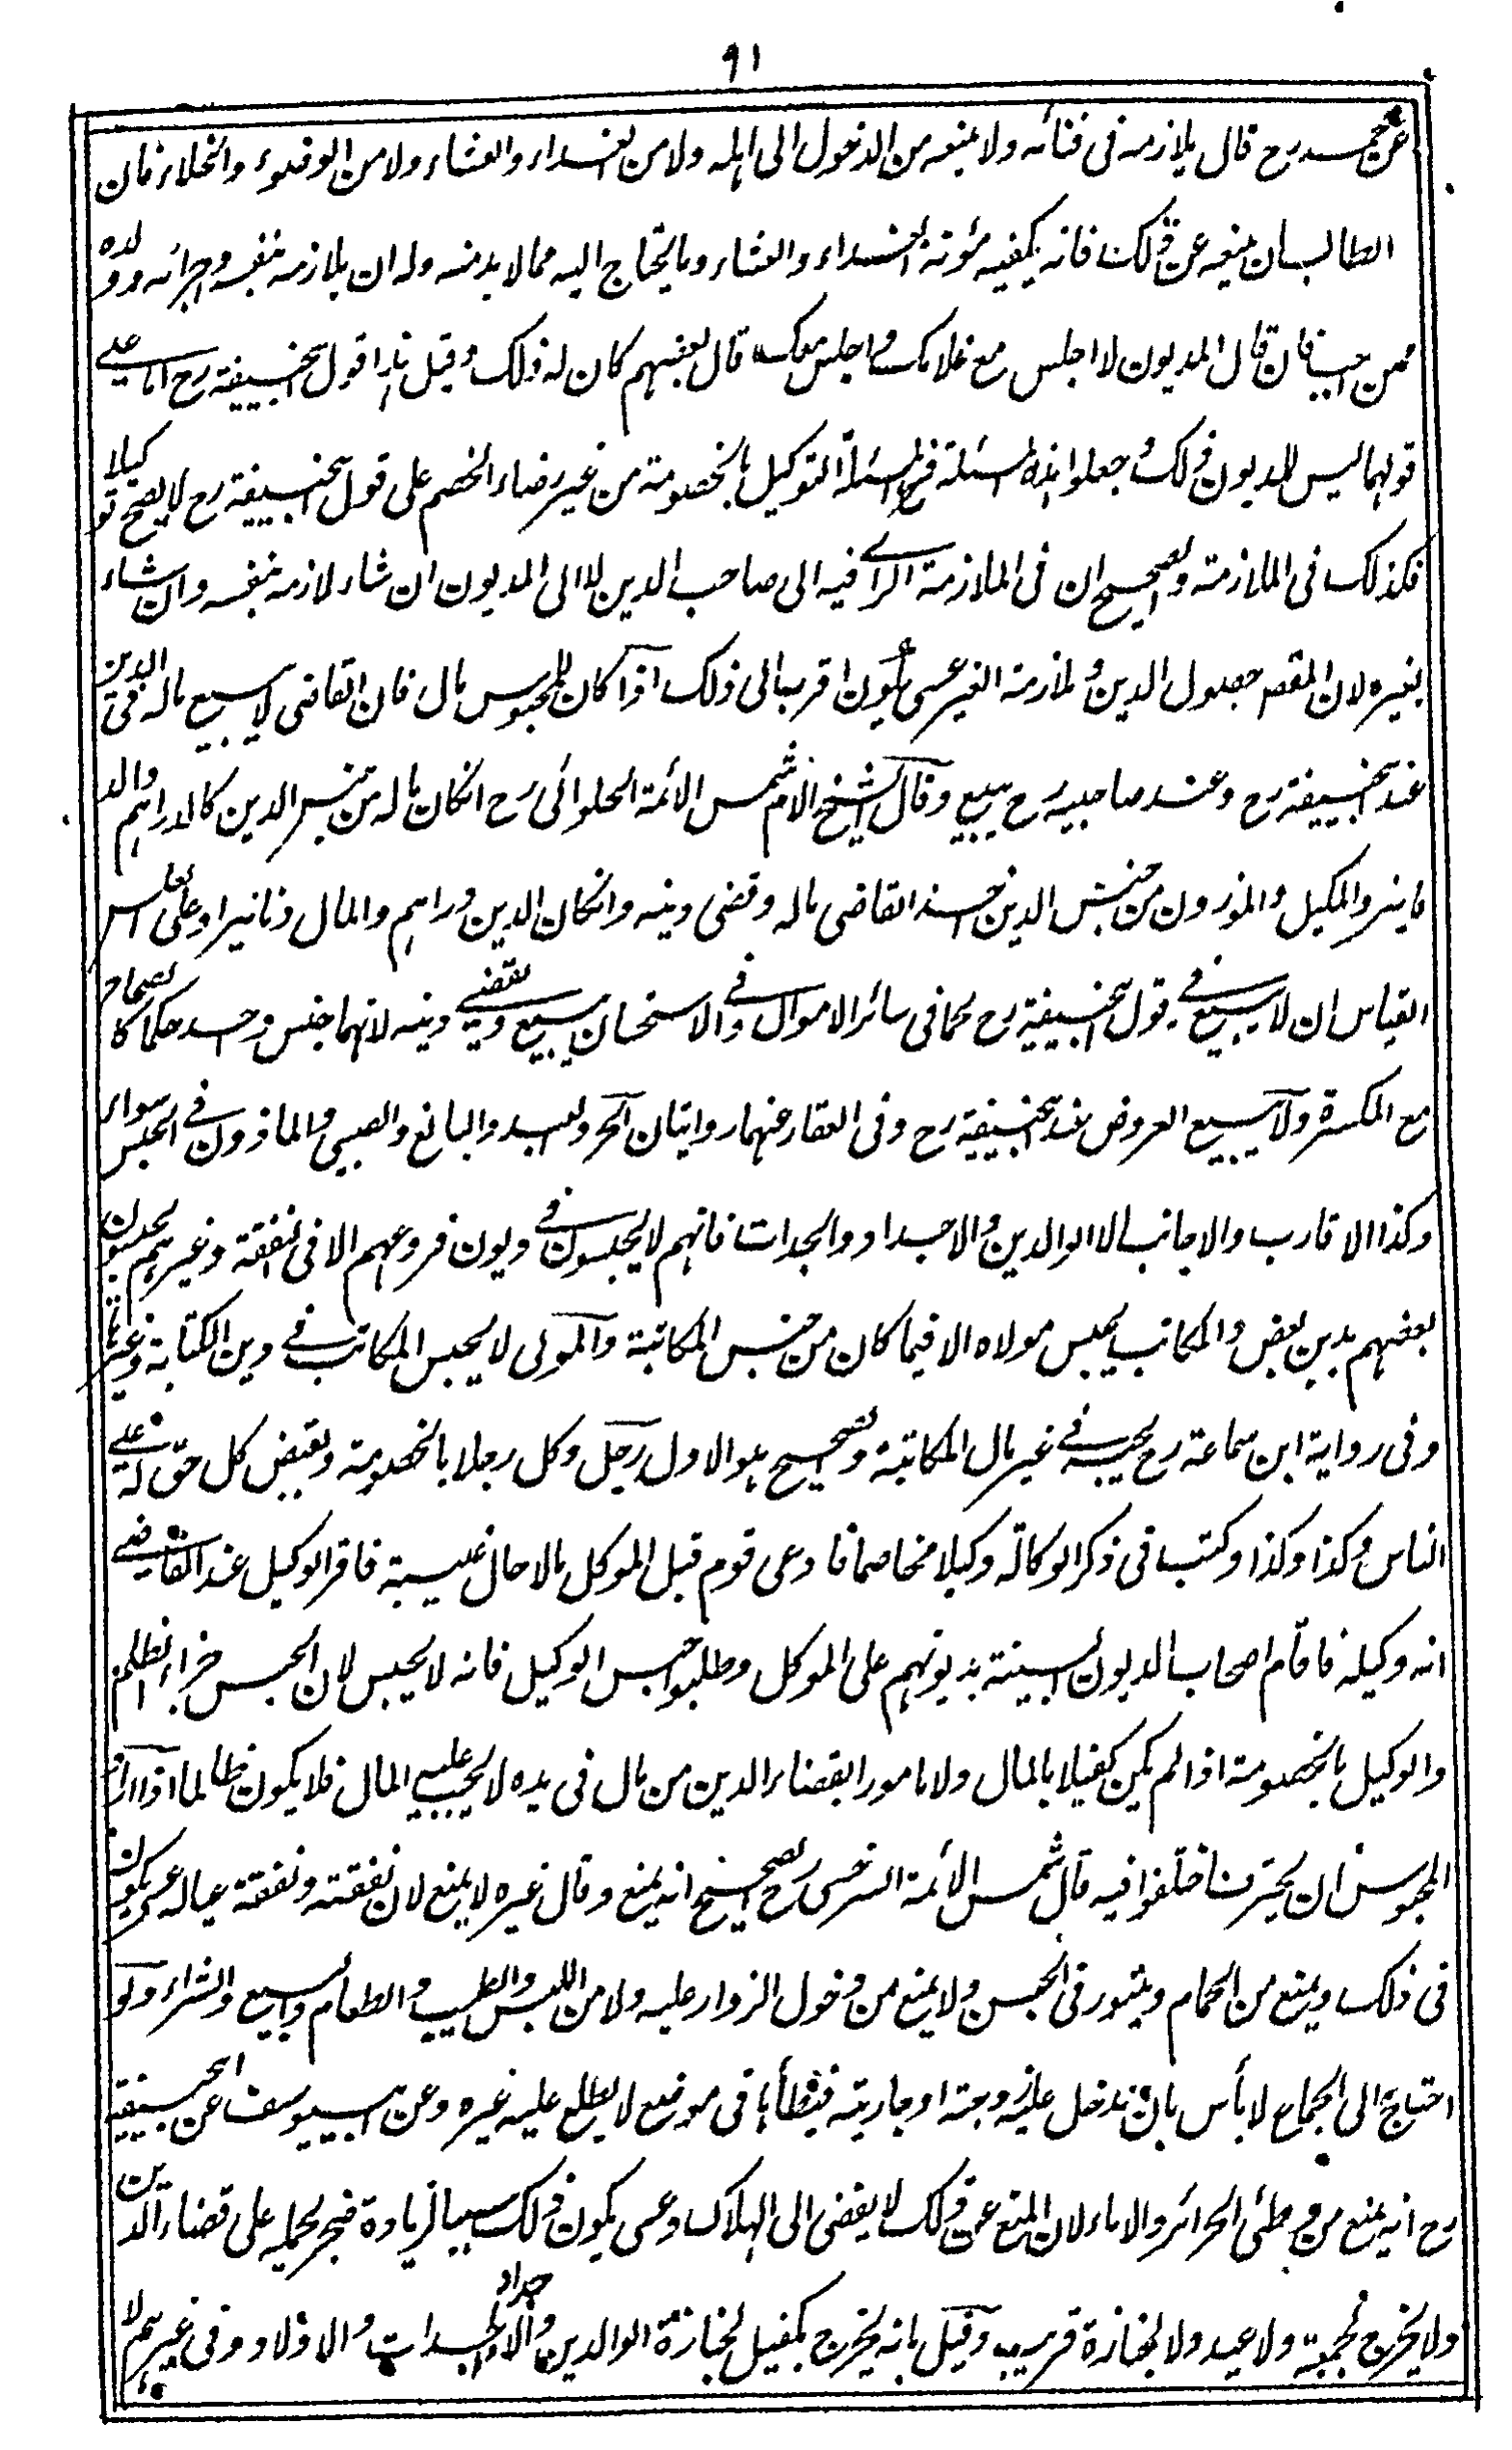 ٩١
عن محمد رح قال يلازمه فى فنائه ولا يمنعه من الدخول الى اهله ولا من الغداء والعشاء ولا من الوضوء والخلاء فان
الطالب ان يمنعه عن ذلك فانه يكفيه مؤنة الغداء والعشاء وما يحتاج اليه مما لا بد منه وله ان يلازمه بنفسه واجرائه وولده
ممن احب فان قال المديون لا اجلس مع غلامك واجلس معك قال بعضهم كان له ذلك وقيل هذا قول ابيحنيفة رح اما على
قولهما ليس للمديون ذلك جعلوا هذه المسئلة فرع المسئلة التوكيل بالخصومة من غير رضاء الخصم على قول ابيحنيفة رح لا يصح توكيلا
فكذلك فى الملازمة والصحيح ان فى الملازمة الراى فيه الى صاحب الدين لا الى المديون ان شاء لازمه بنفسه وان شاء
بغيره لان المقصد حصول الدين وملازمة الغير عسى يكون اقرب الى ذلك اذا كان للمحبوس مال فان القاضى لا يبيع ماله فى الدين
عند ابيحنيفة رح وعند صاحبيه رح يبيع وقال الشيخ الامام شمس الائمة الحلوائى رح انكان ماله من جنس الدين كالدراهم والد
نانير والمكيل والموزون من جنس الدين اخذ القاضى ماله وقضى دينه وانكان الدين دراهم والمال دنانير او على العكس
القياس ان لا يبيع فى قول ابيحنيفة رح كما فى سائر الاموال وفى الاستحسان يبيع ويقضى دينه لانهما جنس واحد حكما كالصحاح
مع المكسرة ولا يبيع العروض عند ابيحنيفة رح وفى العقار عنهما روايتان الحر والعبد والبالغ والصبى والماذون فى الحبس سواء
وكذا الاقارب والاجانب الا الوالدين والاجداد والجدات فانهم لا يحبسون فى ديون فروعهم الا فى النفقة وغيرهم يحبسون
بعضهم بدين بعض والمكاتب يحبس مولاه الا فيما كان من جنس المكاتبة والمولى لا يحبس المكاتب فى دين الكتابة وغيرها
وفى رواية ابن سماعة رح يحبسه فى غير مال المكاتبة والصحيح هو الاول رجل وكل رجلا بالخصومة وبقبض كل حق له على
الناس وكذا وكذا وكتب فى ذكر الوكالة وكيلا مخاصما فادعى قوم قبل الموكل مالا حال غيبته فاقر الوكيل عند القاضى
انه وكيله فاقام اصحاب الديون البينة بديونهم على الموكل وطلبوا حبس الوكيل فانه لا يحبس لان الحبس جزاء الظلم
والوكيل بالخصومة اذا لم يكن كفيلا بالمال ولا مامورا بقضاء الدين من مال فى يده لا يجب عليه المال فلا يكون ظالما اذا اراد
المحبوس ان يحترف اختلفوا فيه قال شمس الائمة السرخسى رح الصحيح انه يمنع وقال غيره لا يمنع لان نفقته ونفقة عياله عسى يكون
فى ذلك ويمنع من الحمام ويتنور فى الحبس ولا يمنع من دخول الزوار عليه ولا من اللبس والطيب والطعام والبيع والشراء ولو
احتاج الى الجماع لا باس بان تدخل عليه زوجته او جاريته فيطأها فى موضع لا يطلع عليه غيره وعن ابييوسف عن ابيحنيفة
رح انه يمنع من وطئ الحرائر والاماء لان المنع عن ذلك لا يفضى الى الهلاك وعسى يكون ذلك سببا لزيادة ضجر يحمله على قضاء الدين
ولا يخرج لجمعة ولا عيد ولا لجنازة قريب وقيل بانه يخرج بكفيل لجنازة الوالدين والاجداد والجدات والاولاد وفى غيرهم لا